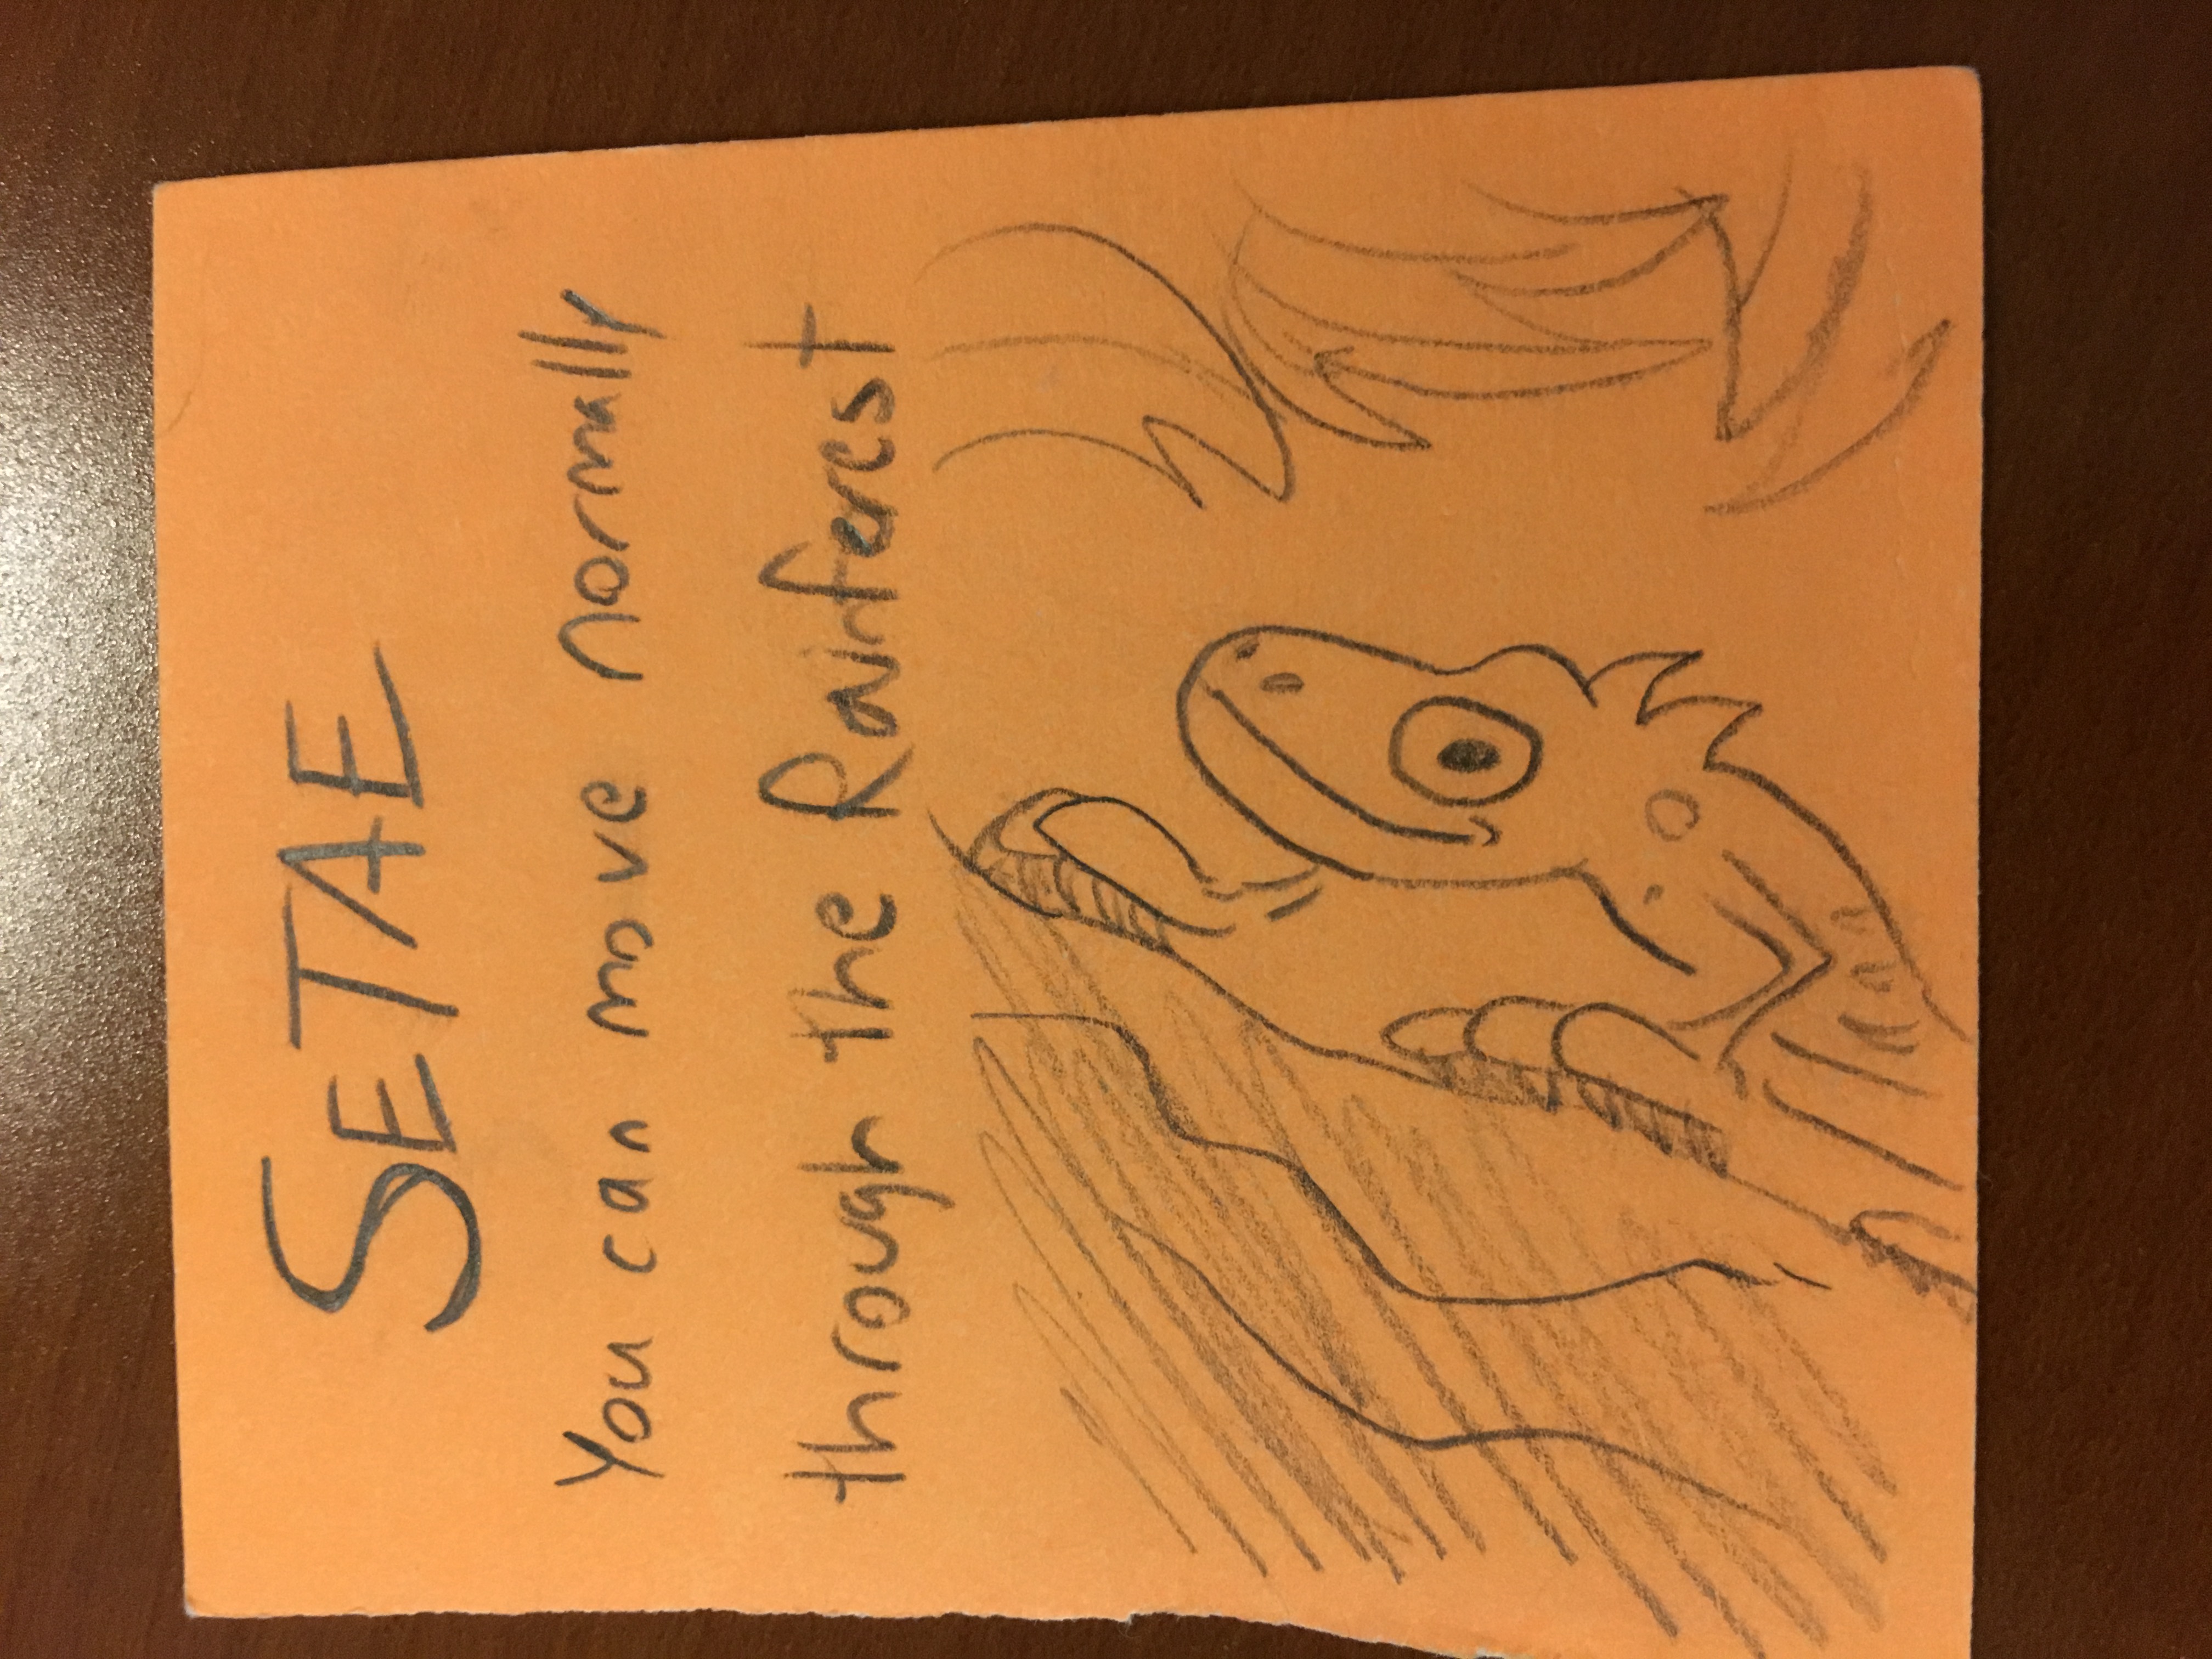 SETAE
You can move normally
through the Rainferest